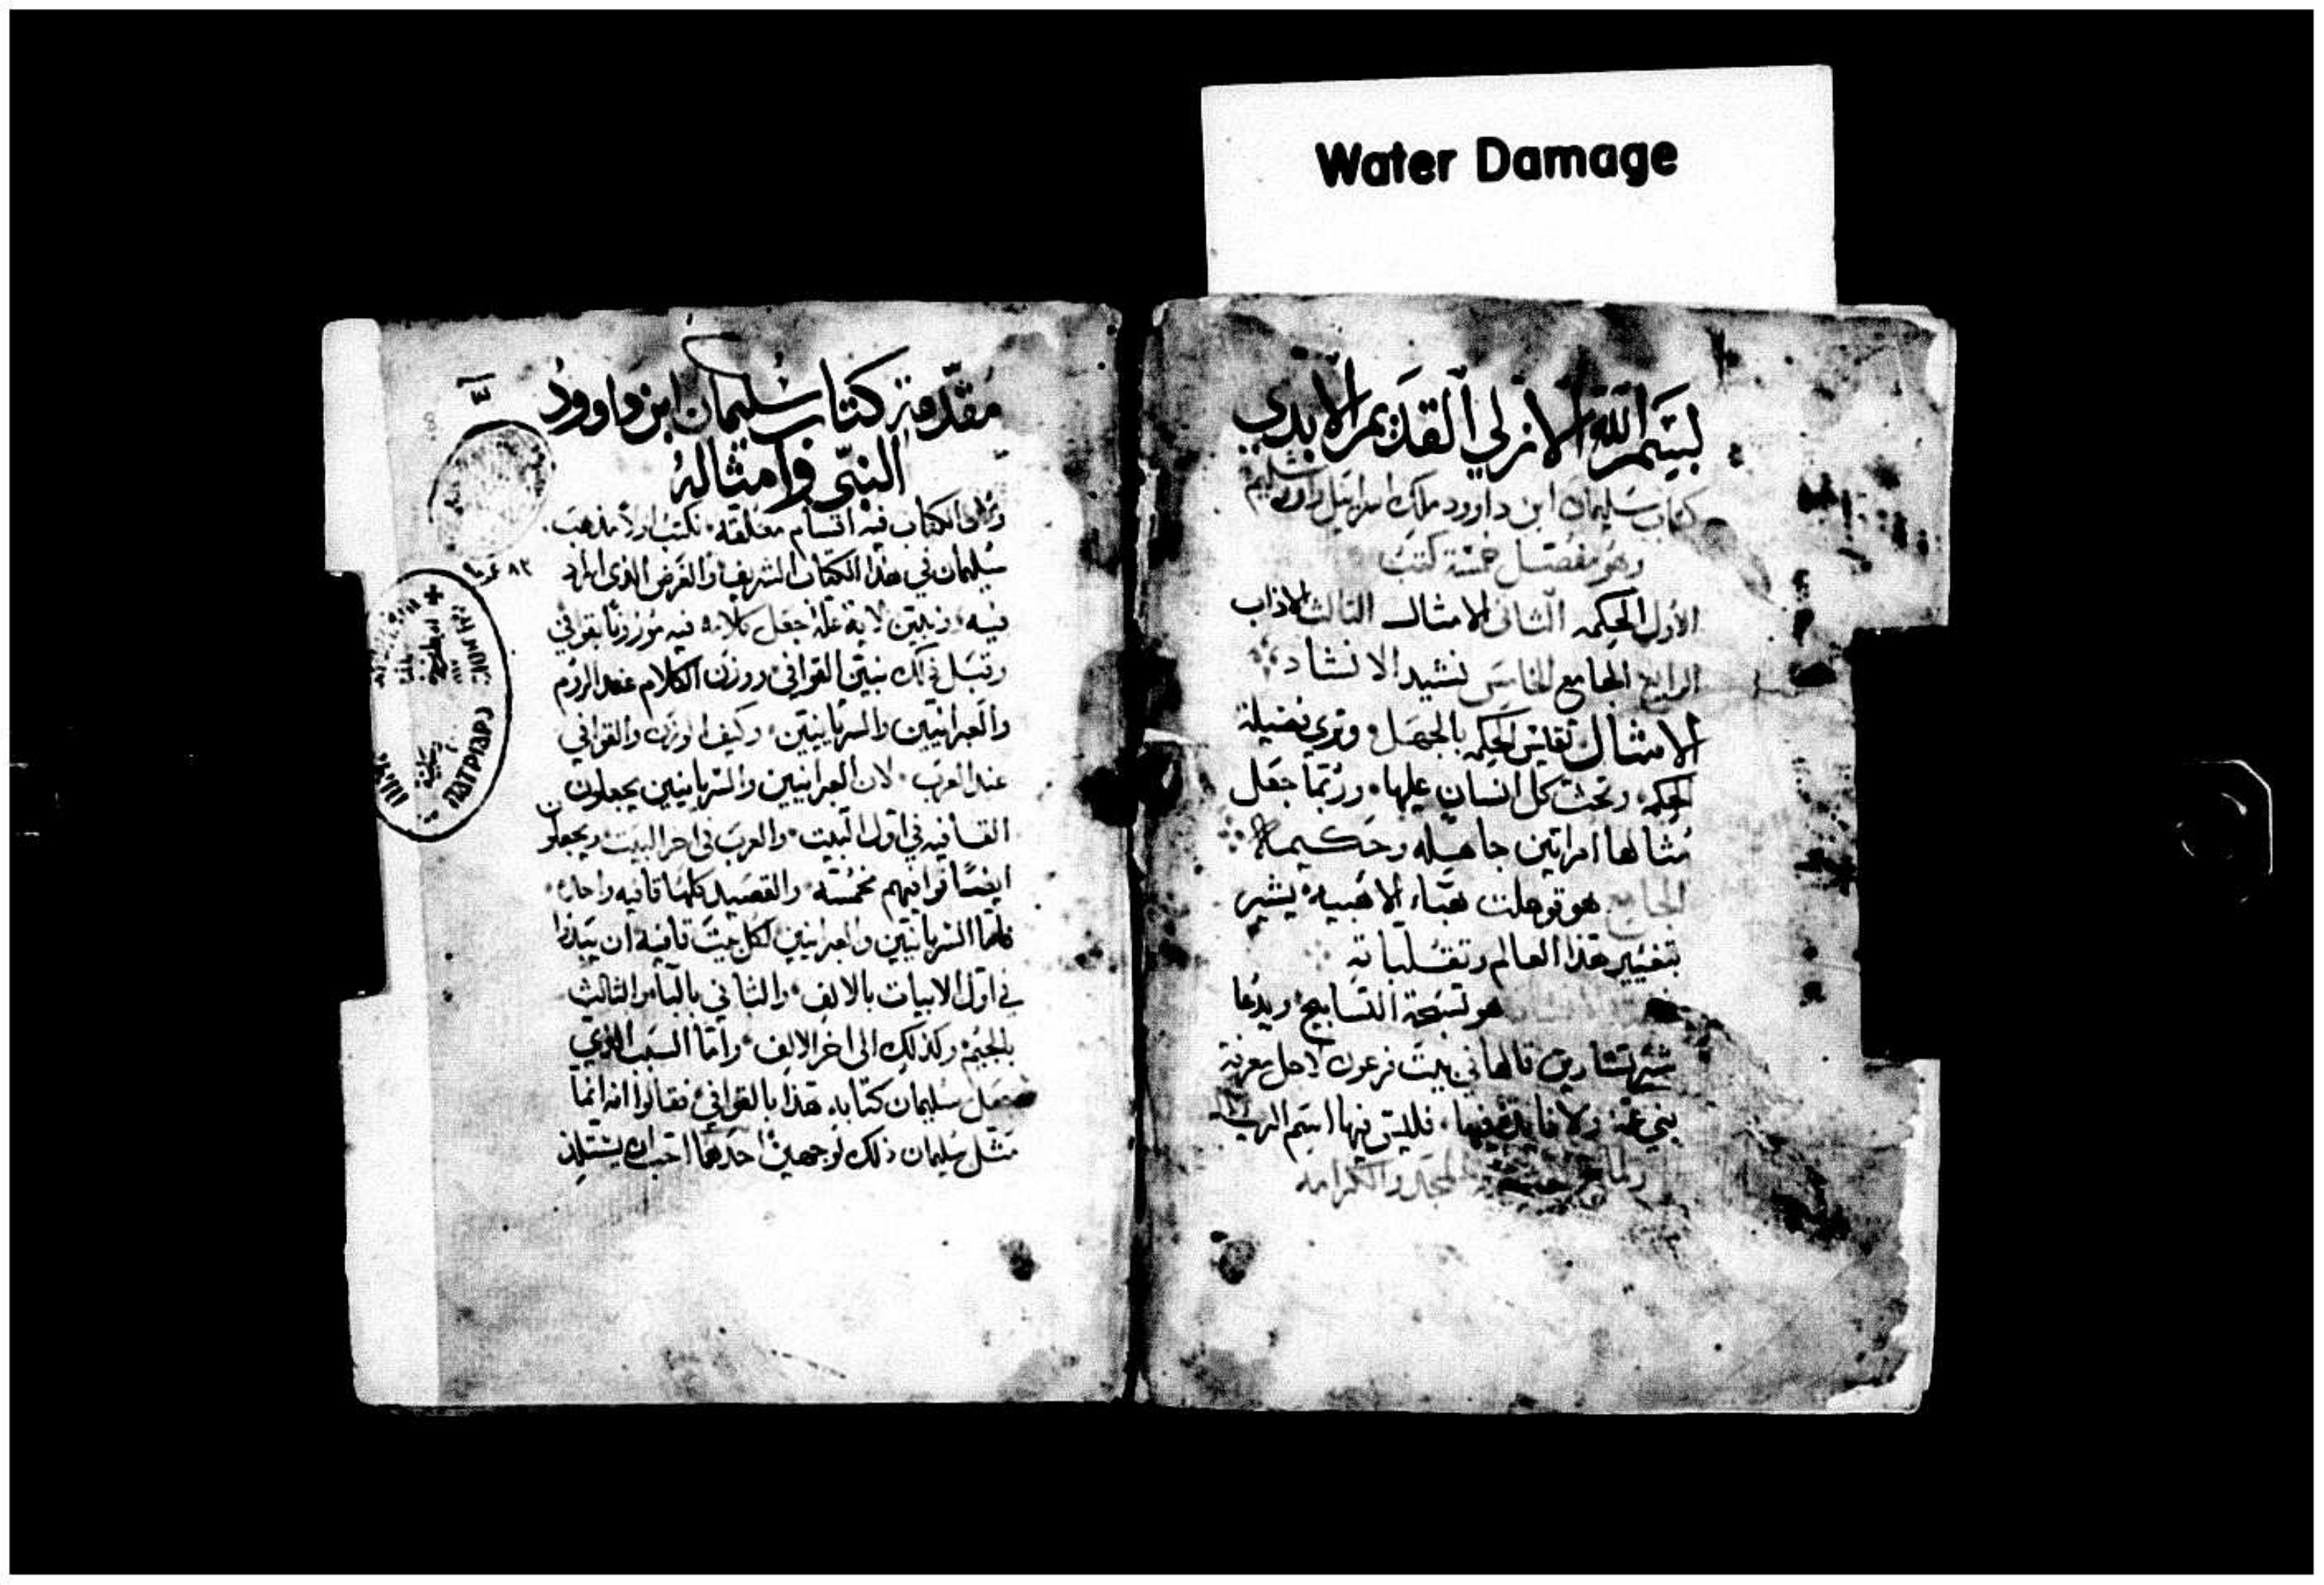 Water Damage
بسم الله الازلي القديم الابدي
كتاب سليمان ابن داوود ملك اسرائيل
وهو مفصل خمسة كتب
الاول الحكمه الثاني الامثال الثالث الاداب
الرابع الجامع الخامس نشيد الانشاد
الامثال تقايس الحكمه بالجهل وتري فضيلة
الحكمه وتحث كل انسان عليها وربما جعل
مثالها امراتين جاهله وحكيمه
الجامع هو قوهلت هباء الاهبيه يشير
بتغيير هذا العالم وتقلباته
هو تسبحة التسابيح ويدعا
شيرتشارين قالها في بيت فرعون لاجل معرفة
فليس فيها اسم الرب
المجد والكرامه
مقدمة كتاب سليمان ابن داوود
النبي وامثاله
الكتاب فيه اقسام معلقه نكتب اولا مذهب
سليمان في هذا الكتاب الشريف والغرض الذي اراد
فيه ونبين لاية علة جعل كلامه فيه موزونا بقوافي
وقبل ذلك نبين القوافي ووزن الكلام عند الروم
والعبرانيين والسريانيين وكيف الوزن والقوافي
عند العرب لان العبرانيين والسريانيين يجعلون
القافيه في اول البيت والعرب في اخر البيت ويجعلون
ايضا قوافيهم مخمسه والقصيد كلها قافيه واحده
فاما السريانيين والعبرانيين لكل بيت قافية ان يبتدا
في اول الابيات بالالف والثاني بالباء والثالث
بالجيم وكذلك الى اخر الالف واما السبب الذي
جعل سليمان كتابه هذا بالقوافي فقالوا انه انما
مثل سليمان ذلك لوجهين احدهما احب ان يستلذ
٨٢